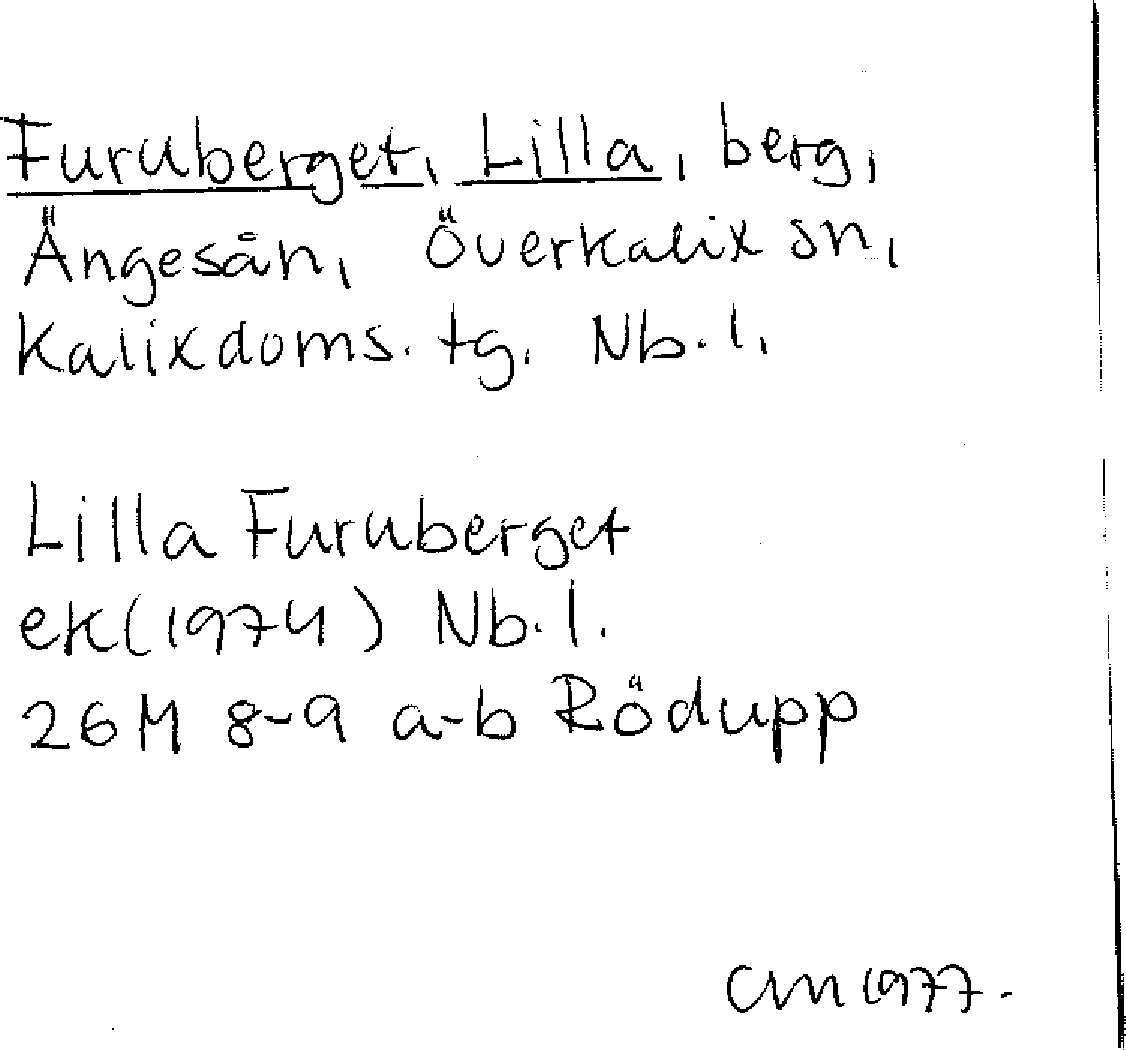 Furuberget, Lilla, berg,
Ängesån, Överkalix sn,
Kalix doms. tg. Nb. l.
Lilla Furuberget
ek (1974) Nb. l.
26M 8-9 a-b Rödupp
CM 1977.